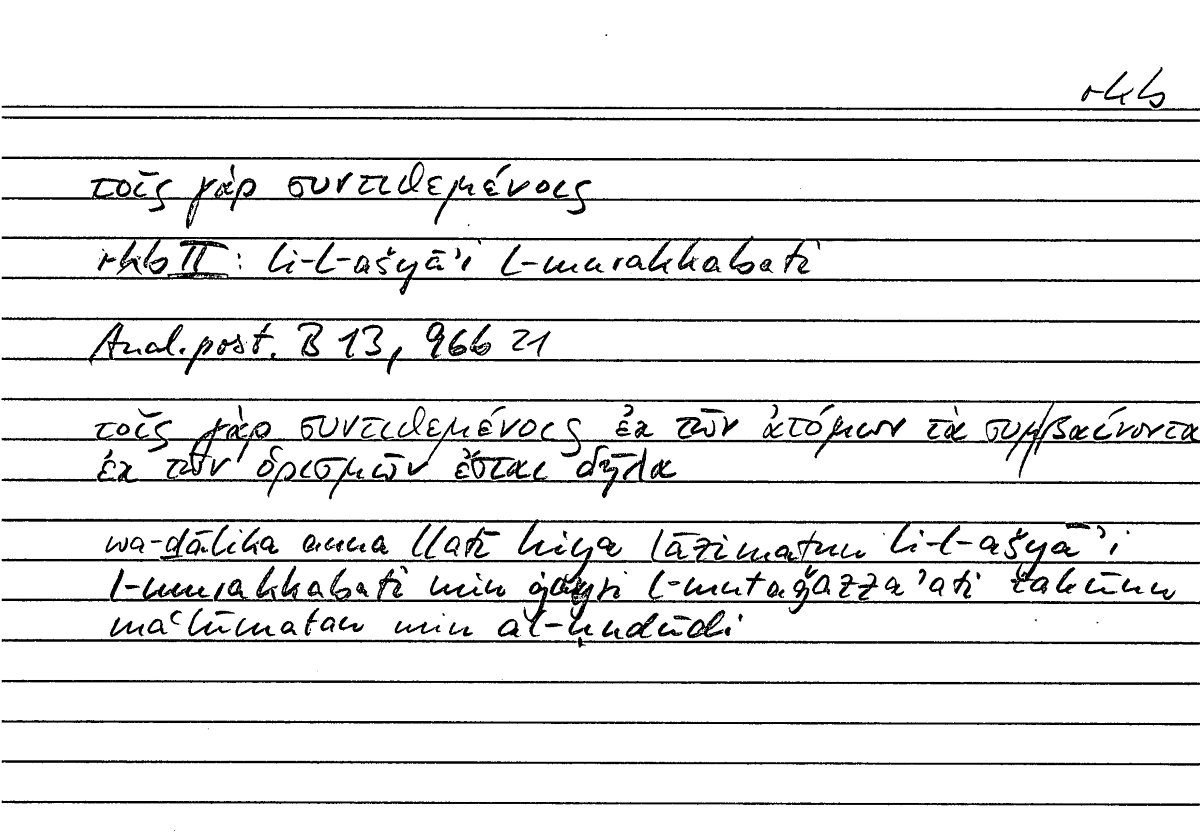 rkb
τοῖς γὰρ συντιθεμένοις
rkb II: li-l-ašyā’i l-murakkabati
Anal. post. B 13, 96b 21
τοῖς γὰρ συντιθεμένοις ἐκ τῶν ἀτόμων τὰ συμβαίνοντα
ἐκ τῶν ὁρισμῶν ἔσται δῆλα
wa-ḏālika anna llatī hiya lāzimatun li-l-ašyā’i
l-murakkabati min ġayri l-mutaǧazza’ati takūnu
ma‘lūmatan min al-ḥudūdi